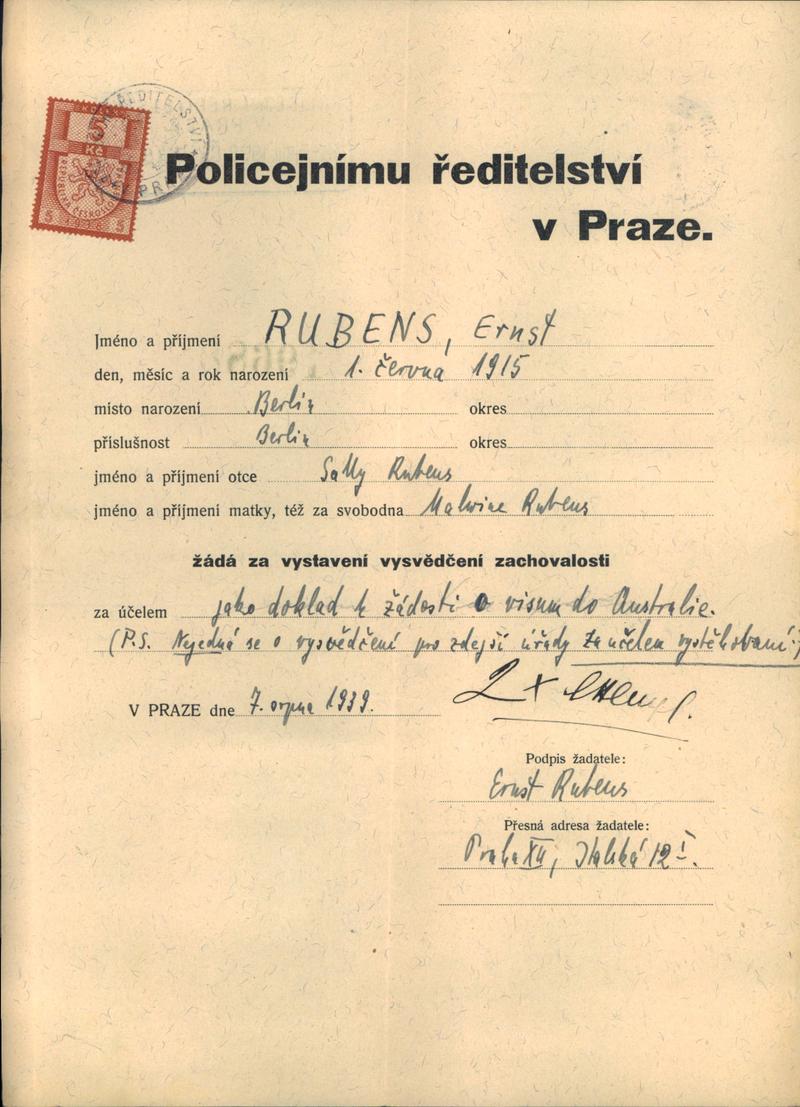 KOLEK
5
Kč
REPUBLIKA ČESKOSLOVENSKÁ
5 5
ŘEDITELSTVÍ
Policejnímu ředitelství
v Praze.
Jméno a příjmení RUBENS, Ernst
den, měsíc a rok narození 1. června 1915
místo narození Berlin okres
příslušnost Berlin okres
jméno a příjmení otce Sally Rubens
jméno a příjmení matky, též za svobodna Malwine Rubens
žádá za vystavení vysvědčení zachovalosti
za účelem jako doklad k žádosti o visum do Australie.
(P.S. Nejedná se o vysvědčení pro zdejší úřady za účelem vystěhovaní.)
2x
V PRAZE dne 7. srpna 1939.
Podpis žadatele:
Ernst Rubens
Přesná adresa žadatele:
Praha XII, Italská 12 I.